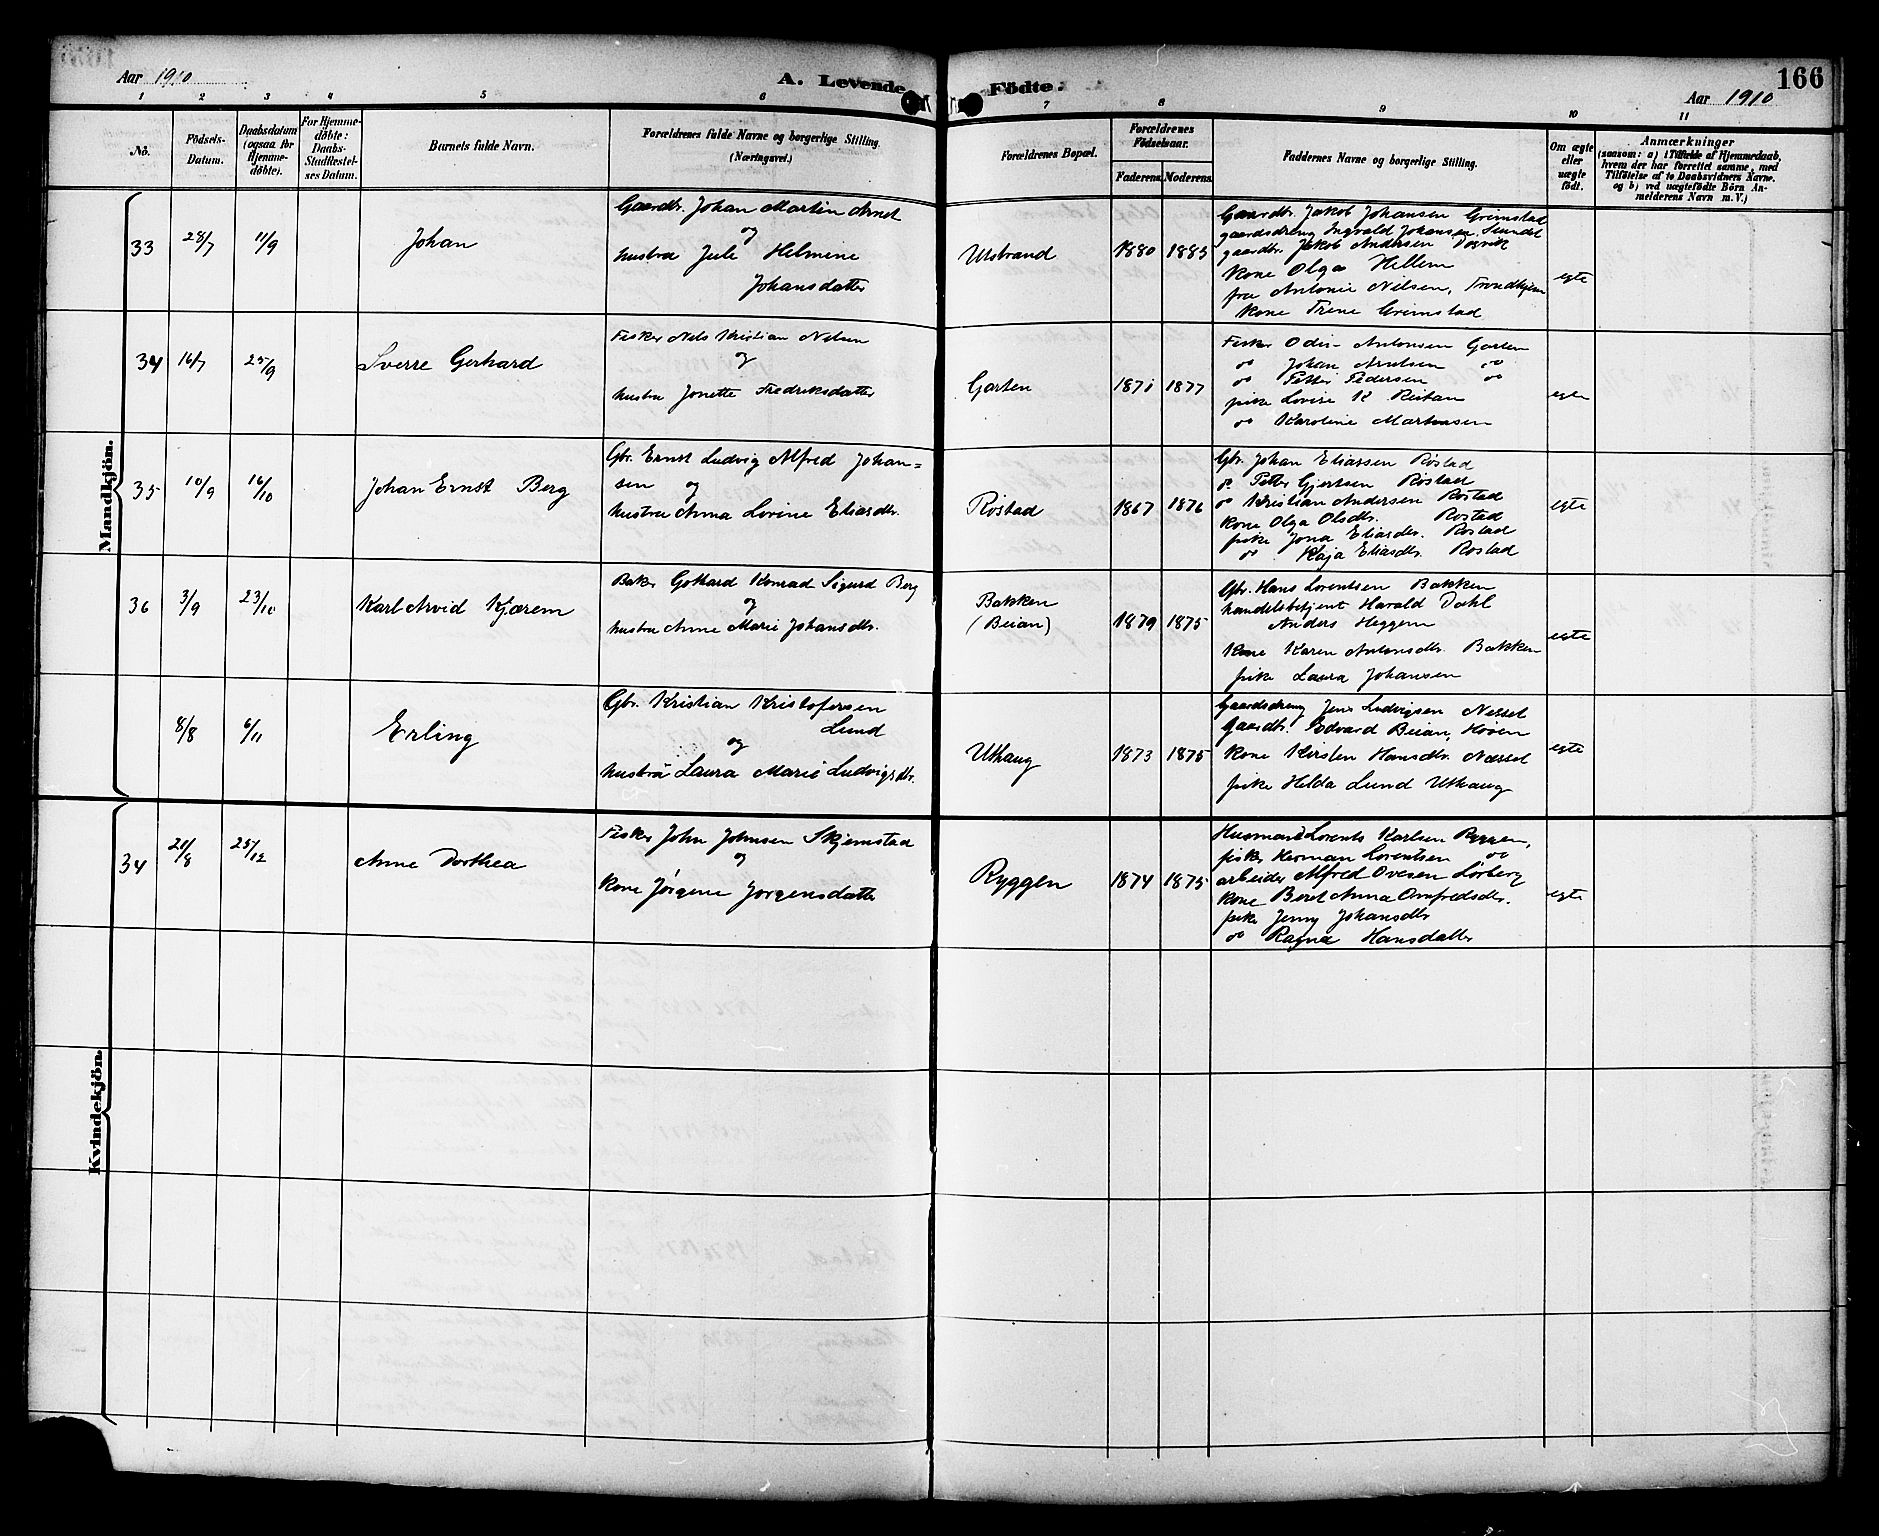 166
Aar 1910
A. Levende Födte.
Aar 1910
1 2 3 4 5 6 7 8 9 10 11
No.
Födsels-Datum.
Daabsdatum (ogsaa for Hjemme-døbte).
For Hjemme-døbte: Daabs-Stadfæstel-ses Datum.
Barnets fulde Navn.
Forældrenes fulde Navne og borgerlige Stilling.
(Næringsvei.)
Forældrenes Bopæl.
Forældrenes Födselsaar.
Faderens. Moderens.
Faddernes Navne og borgerlige Stilling.
Om ægte eller uægte født.
Anmærkninger
(saasom: a) i Tilfælde af Hjemmedaab, hvem der har forrettet samme, med Tilføielse af to Daabsvidners Navne. og b) ved uægtefødte Börn An-melderens Navn m. V.)
Mandkjön.
33 28/7 11/9 Johan
Gaardbr. Johan Martin Arnet
og
hustru Jule Helmine
Johansdatter
Ulstrand 1880 1883
Gaardbr. Jakob Johansen Grimstad
gaardsdreng Ingvald Johansen
gaardbr. Jakob Andersen
Kone Olga Hellem
fru Antonie Nilsen, Trondhjem
Kone Trine Grimstad
egte
34 16/7 25/9 Sverre Gerhard
Fisker Nels Kristian Nelsen
og
hustru Jonette Fredriksdatter
Garten 1871 1877
Fisker Odin Antonsen Garten
do Johan Arntsen do
do Petter Pedersen do
pike Lovise K Reitan
do Karoline Martinsen
egte
35 10/9 16/10 Johan Ernst Berg
Gbr. Ernst Ludvig Alfred Johan=
sen og
hustru Anna Lovine Eliasdtr.
Røstad 1867 1876
Gbr. Johan Eliassen Røstad
do Petter Gjertsen Røstad
do Kristian Andersen Røstad
Kone Olga Olsdtr. Røstad
pike Jona Eliasdtr. Røstad
do Kaja Eliasdtr. Røstad
egte
36 3/9 23/10 Karl Arvid Kjærem
Baker Gothard Konrad Sigurd Berg
og
hustru Anne Marie Johansdtr.
Bakken
(Beian) 1879 1875
Gbr. Hans Lorentsen Bakken
handelsbetjent Harald Dahl
Anders Heggem
Kone Karen Antonsdtr. Bakken
pike Laura Johansen
egte
8/8 6/11 Erling
Gbr. Kristian Kristofersen
Lund
og
hustru Laura Marie Ludvigsdtr.
Uthaug 1873 1875
Gaardsdreng Jens Ludvigsen Nesset
Gaardbr. Edvard Beian, Hoven
Kone Kirsten Hansdtr. Næsset
pike Helda Lund Uthaug
egte
Kvindekjön.
34 21/8 25/12 Anne Dorthea
Fisker John Johnsen Skjemstad
og
Kone Jørgine Jørgensdatter
Ryggen 1874 1875
Husmand Lorents Karlsen Ryggen,
fisker Herman Lorentsen do
arbeider Alfred Ovesen Lørberg
Kone Beret Anna Arnfredsdtr.
pike Jenny Johansdtr
do Ragna Hansdatter
egte